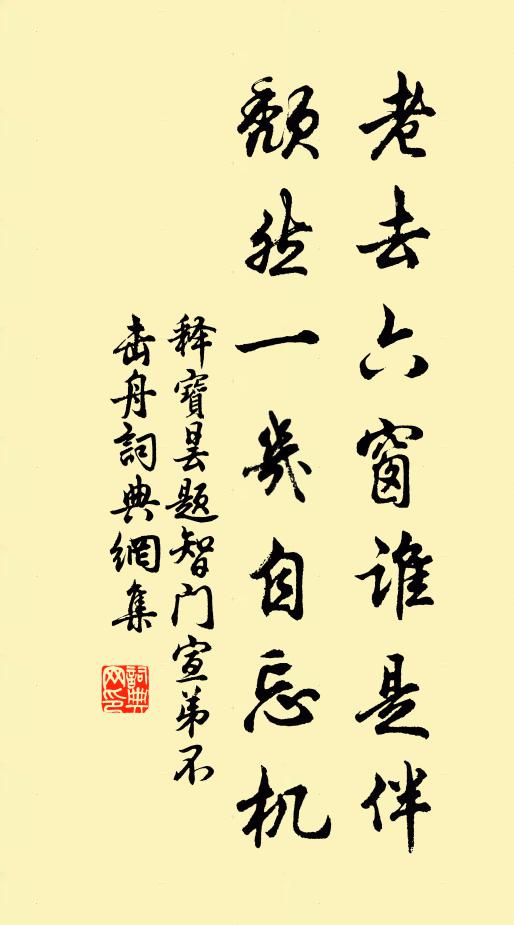 老去六窗谁是伴
颓然一几自忘机
释寶昙题智门宣弟不
击舟詞典網集
詞典网印